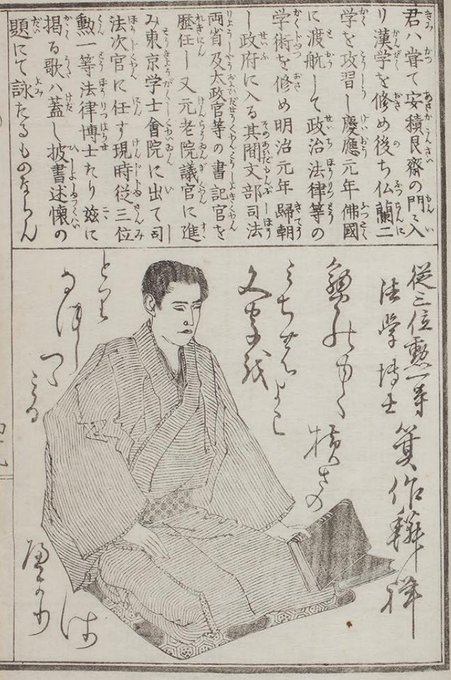 君ハ甞て安積艮齋の門に入
り漢学を修め後ち仏蘭二
学を攻習し慶應元年佛國
に渡航して政治法律等の
学術を修め明治元年歸朝
し政府に入る其間文部司法
両省及太政官等の書記官を
歴任し又元老院議官に進
み東京学士會院に出て司
法次官に任す現時從三位
勲一等法律博士たり茲に
掲る歌ハ蓋し披書述懐の
題にて詠たるものならん
從三位勲一等
法学博士 箕作麟祥
横さの